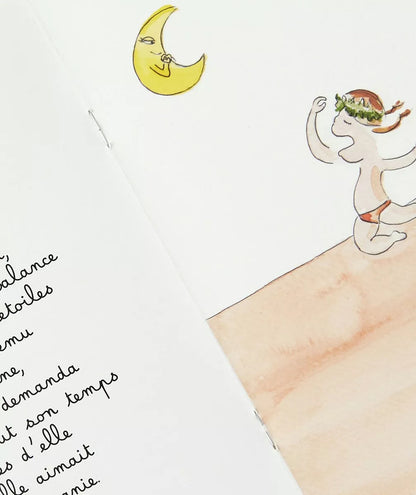 balance
étoiles
demanda
ut son temps
s d'elle
lle aimait
anie.